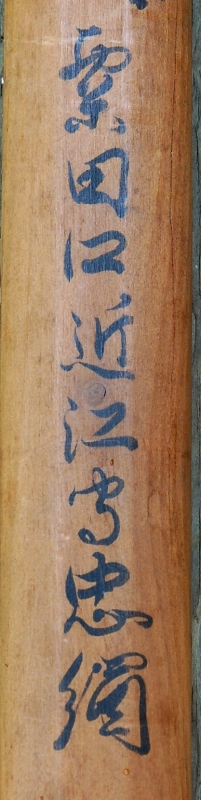 粟田口近江守忠綱